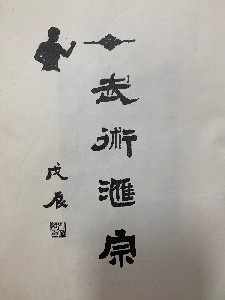 武術滙宗
戊辰